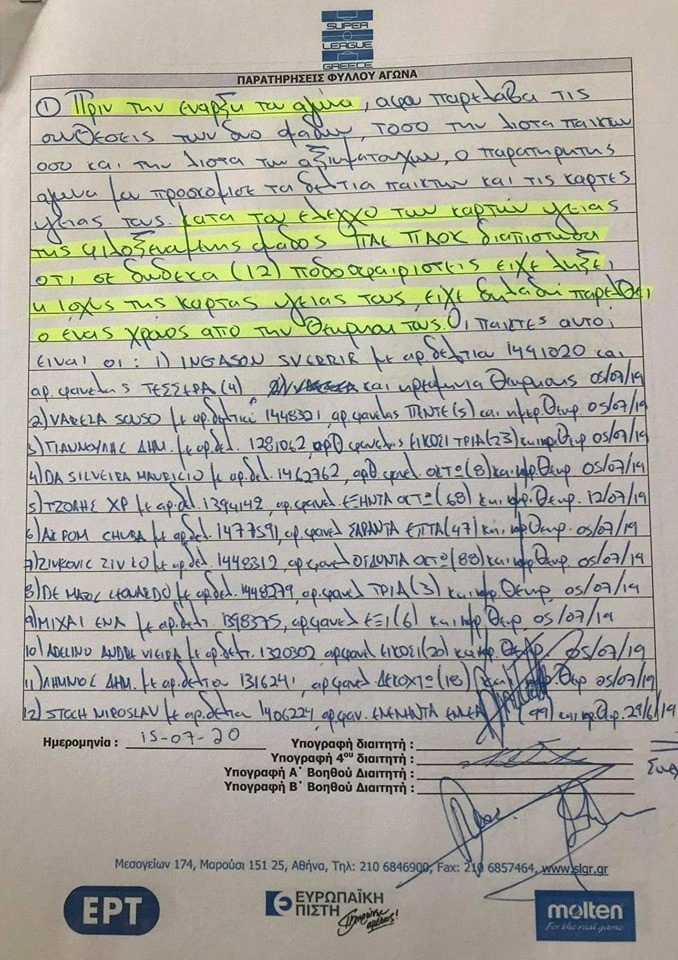 SUPER
LEAGUE
GREECE
ΠΑΡΑΤΗΡΗΣΕΙΣ ΦΥΛΛΟΥ ΑΓΩΝΑ
① Πριν την εναρξη του αγωνα, αφου παρελαβα τις
συνθεσεις των δυο φαδων, τοσο την λιστα παικτων
οσο και την λιστα των αξιωματουχων, ο παρατηρητης
αγωνα μου προσκομισε τα δελτια παικτων και τις καρτες
υγειας τους. κατα τον ελεγχο των καρτων υγειας
της φιλοξενουμενης ομαδος ΠΑΕ ΠΑΟΚ διαπιστωθη
οτι σε δωδεκα (12) ποδοσφαιριστες ειχε ληξει
η ισχυς της καρτας υγειας τους, ειχε δηλαδη παρελθει
ο ενας χρονος απο την θεωρηση τους. Οι παικτες αυτοι
ειναι οι: 1) INGASON SVERRIR με αρ.δελτιου 1491020 και
αρ. φανελας ΤΕΣΣΕΡΑ (4) και ημερομηνια θεωρησης 05/07/19
2) VARELA SOUSO με αρ.δελτιου 1448321, αρ.φανελας ΠΕΝΤΕ (5) και ημερ.θεωρ. 05/07/19
3) ΓΙΑΝΝΟΥΛΗΣ ΔΗΜ. με αρ.δελ. 1281062, αρθ φανελας ΕΙΚΟΣΙ ΤΡΙΑ (23) και ημ.θεωρ. 05/07/19
4) DA SILVEIRA MAURICIO με αρ.δελ. 1462762, αρθ. φανελ. ΟΚΤΩ (8) και ημ. θεωρ. 05/07/19
5) ΤΖΟΛΗΣ ΧΡ με αρ.δελ. 1394142, αρ.φανελ ΕΞΗΝΤΑ ΟΚΤΩ (68) και ημ. θεωρ. 12/07/19
6) AKPOM CHUBA με αρ.δελ. 1477591, αρ.φανελ ΣΑΡΑΝΤΑ ΕΠΤΑ (47) και ημ. θεωρ. 05/07/19
7) ZIVKOVIC ZIVKO με αρ.δελ. 1448312, αρ.φανελ ΟΓΔΟΝΤΑ ΟΚΤΩ (88) και ημ. θεωρ. 05/07/19
8) DE MATOS LEONARDO με αρ.δελ. 1448279, αρ.φανελ ΤΡΙΑ (3) και ημ. θεωρ. 05/07/19
9) ΜΙΧΑΙ ΕΝΕΑ με αρ.δελτ. 1398375, αρ.φανελ ΕΞΙ (6) και ημ. θεωρ. 05/07/19
10) ADELINO ANDRE VIEIRA με αρ.δελτ. 1320302, αρ.φανελ ΕΙΚΟΣΙ (20) και ημ. θεωρ. 05/07/19
11) ΛΗΜΝΙΟΣ ΔΗΜ. με αρ.δελτιου 1316241, αρ.φανελ ΔΕΚΟΧΤΩ (18) και ημ. θεωρ 05/07/19
12) STOCH MIROSLAV με αρ.δελτιου 1406224, αρ.φαν. ΕΝΕΝΗΝΤΑ ΕΝΝΕΑ (99) και ημ.θεωρ. 29/6/19
Ημερομηνία : 15-07-20
Υπογραφή διαιτητή :
Υπογραφή 4ου διαιτητή :
Υπογραφή Α΄ Βοηθού Διαιτητή :
Υπογραφή Β΄ Βοηθού Διαιτητή :
Μεσογείων 174, Μαρούσι 151 25, Αθήνα, Τηλ: 210 6846900, Fax: 210 6857464, www.slgr.gr
ΕΡΤ
ΕΥΡΩΠΑΪΚΗ
ΠΙΣΤΗ
molten
For the real game